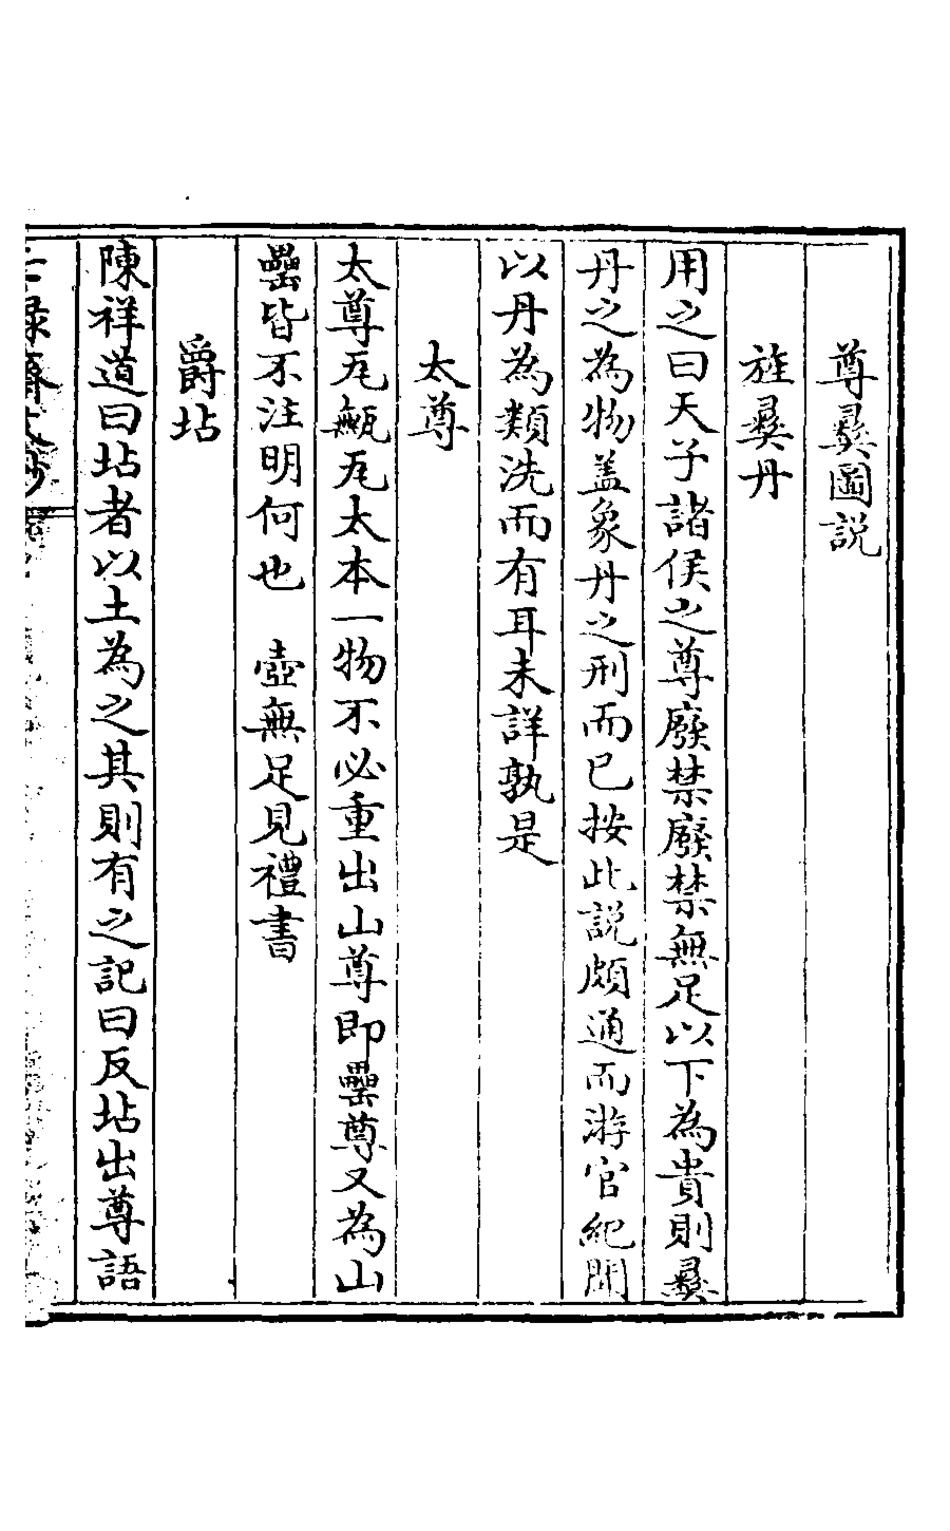 尊彝圖説
旌彝丹
用之曰天子諸侯之尊廢禁廢禁無足以下為貴則彝
丹之為物盖象丹之刑而已按此説頗通而游官紀聞
以丹為類洗而有耳未詳孰是
太尊
太尊瓦甒瓦太本一物不必重出山尊即罍尊又為山
罍皆不注明何也　壺無足見禮書
爵坫
陳祥道曰坫者以土為之其則有之記曰反坫出尊語